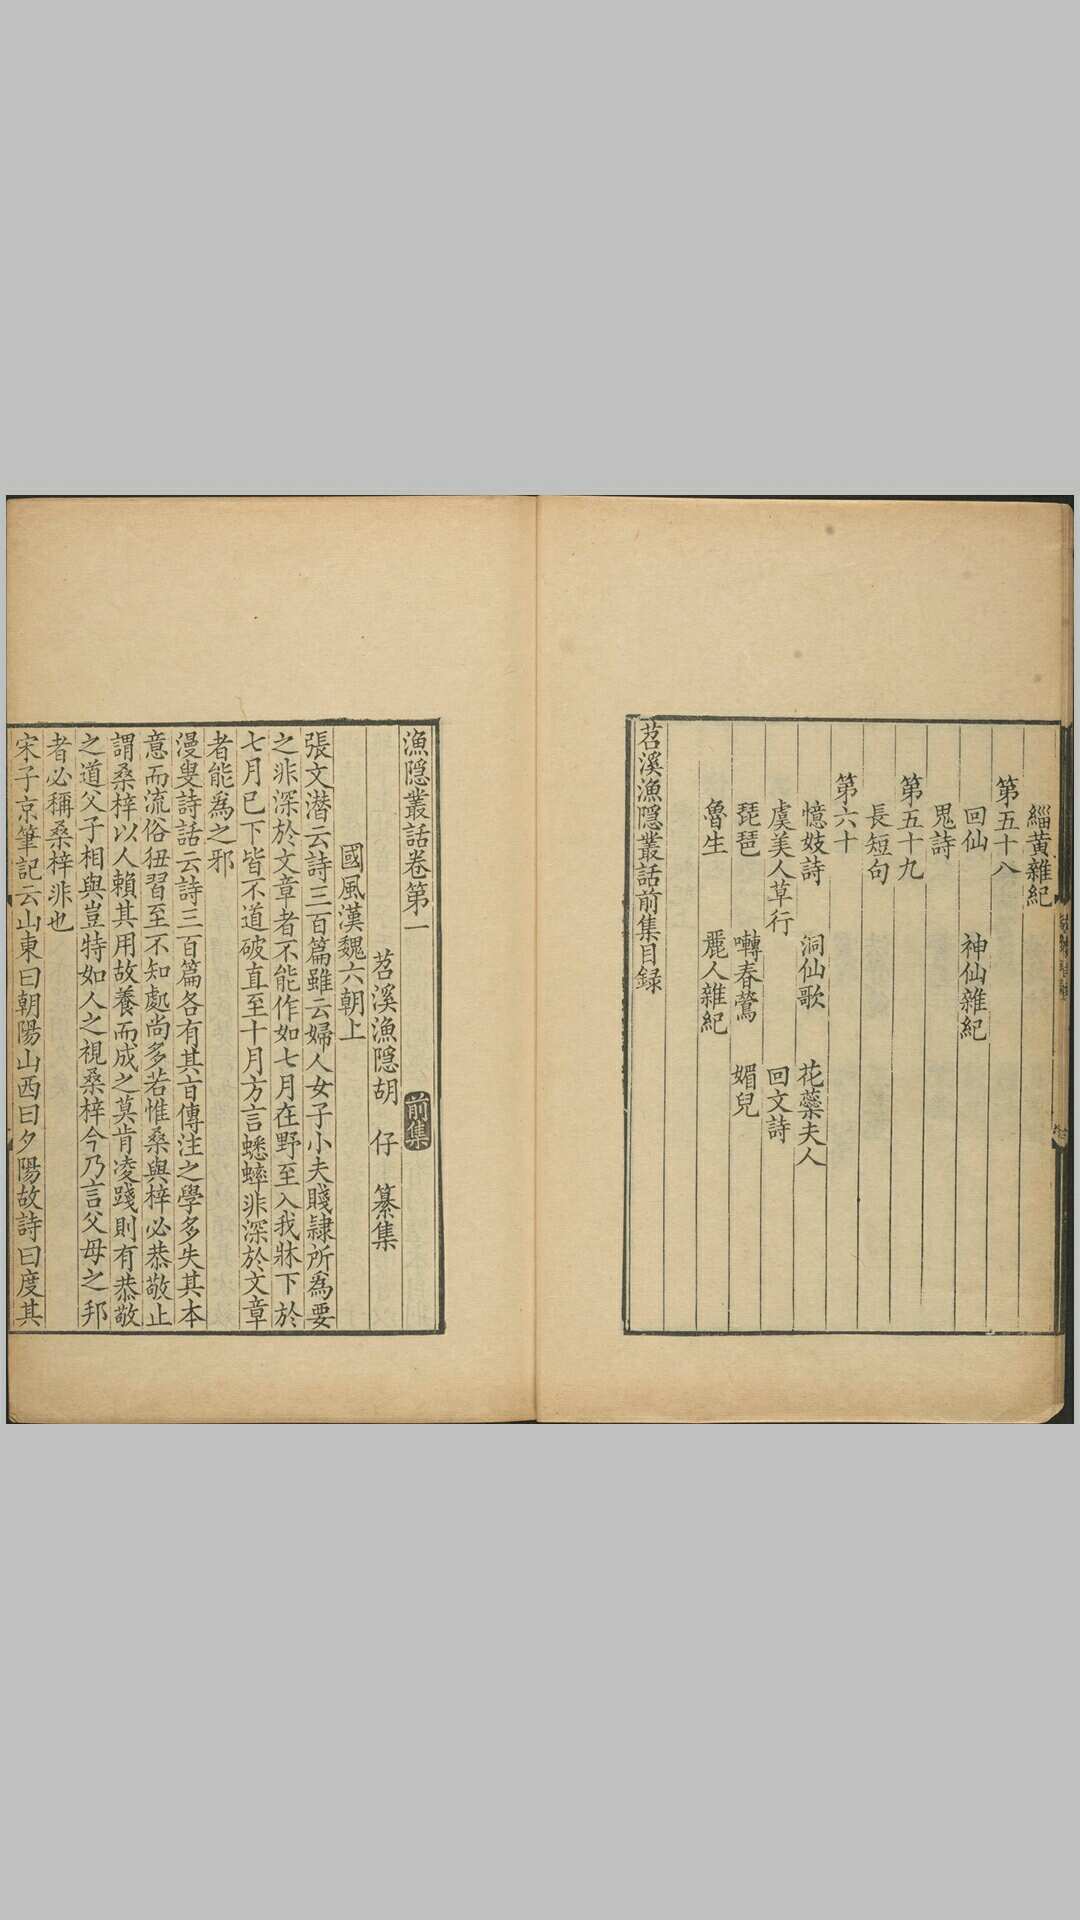 緇黃雜紀
第五十八
回仙　神仙雜紀
鬼詩
第五十九
長短句
第六十
憶妓詩　洞仙歌　花蘂夫人
虞美人草行　回文詩
琵琶　囀春鶯　媚兒
魯生　麗人雜紀
苕溪漁隱叢話前集目録
漁隱叢話卷第一　前集
苕溪漁隱胡　仔　纂集
國風漢魏六朝上
張文潛云詩三百篇雖云婦人女子小夫賤隷所爲要
之非深於文章者不能作如七月在野至入我牀下於
七月已下皆不道破直至十月方言蟋蟀非深於文章
者能爲之邪
漫叟詩話云詩三百篇各有其旨傳注之學多失其本
意而流俗狃習至不知處尚多若惟桑與梓必恭敬止
謂桑梓以人賴其用故養而成之莫肯凌踐則有恭敬
之道父子相與豈特如人之視桑梓今乃言父母之邦
者必稱桑梓非也
宋子京筆記云山東曰朝陽山西曰夕陽故詩曰度其